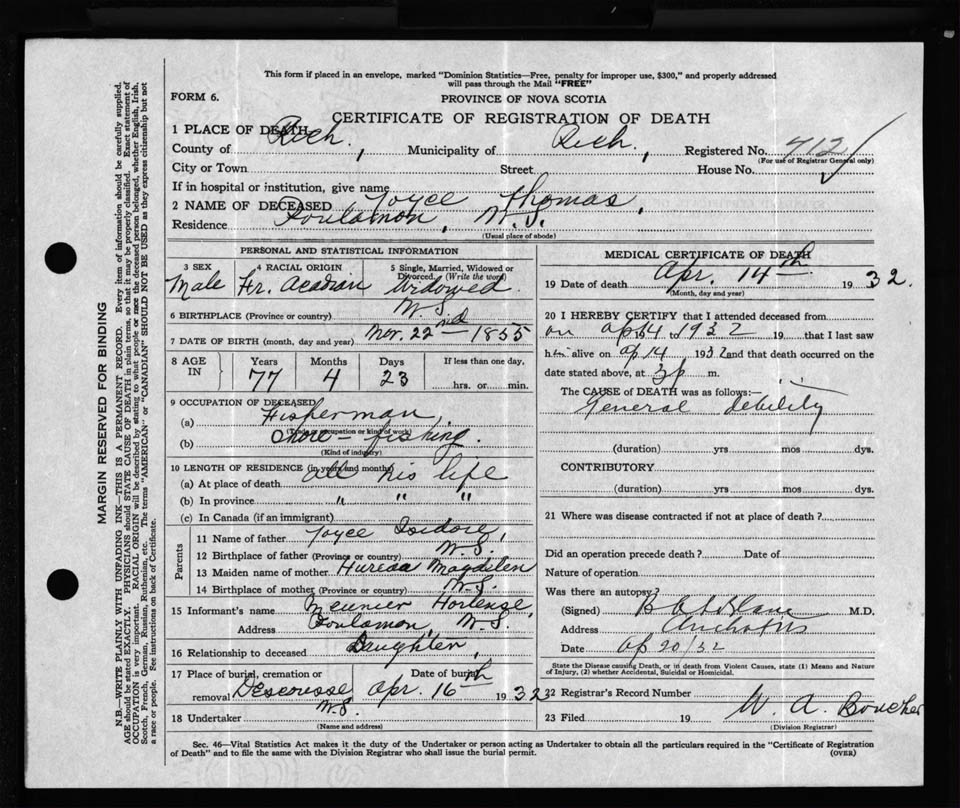 This form if placed in an envelope, marked "Dominion Statistics—Free, penalty for improper use, $300," and properly addressed
will pass through the Mail "FREE"
FORM 6.
PROVINCE OF NOVA SCOTIA
CERTIFICATE OF REGISTRATION OF DEATH
1 PLACE OF DEATH
County of Rich. , Municipality of Rich. , Registered No. 412
(For use of Registrar General only)
City or Town Street House No.
If in hospital or institution, give name
2 NAME OF DECEASED Joyce Thomas,
Residence Poulamon, N.S.
(Usual place of abode)
PERSONAL AND STATISTICAL INFORMATION
3 SEX 4 RACIAL ORIGIN 5 Single, Married, Widowed or
Divorced. (Write the word)
Male Fr. Acadian Widowed.
6 BIRTHPLACE (Province or country) N.S.
7 DATE OF BIRTH (month, day and year) Nov. 22nd 1855
8 AGE IN Years Months Days If less than one day,
77 4 23 hrs. or min.
9 OCCUPATION OF DECEASED
(a) Fisherman,
(Trade or occupation or kind of work)
(b) Shore-fishing.
(Kind of industry)
10 LENGTH OF RESIDENCE (in years and months)
(a) At place of death all his life
(b) In province " " "
(c) In Canada (if an immigrant)
Parents
11 Name of father Joyce Isidore,
12 Birthplace of father (Province or country) N.S.
13 Maiden name of mother Magdelen
14 Birthplace of mother (Province or country) N.S.
15 Informant's name Meunier Hortense,
Address Poulamon, N.S.
16 Relationship to deceased Daughter,
17 Place of burial, cremation or Date of burial
removal Descousse Apr. 16th 1932
N.S.
18 Undertaker
(Name and address)
MEDICAL CERTIFICATE OF DEATH
19 Date of death Apr. 14th 1932.
(Month, day and year)
20 I HEREBY CERTIFY that I attended deceased from
on Ap 14 19 to 1932 19 that I last saw
him alive on ap 14 1932 and that death occurred on the
date stated above, at 3 p m.
The CAUSE of DEATH was as follows:
General debility
(duration) yrs mos dys.
CONTRIBUTORY
(duration) yrs mos dys.
21 Where was disease contracted if not at place of death?
Did an operation precede death? Date of
Nature of operation
Was there an autopsy?
(Signed) M.D.
Address
Date Ap 20/32
State the Disease causing Death, or in death from Violent Causes, state (1) Means and Nature
of Injury, (2) whether Accidental, Suicidal or Homicidal.
22 Registrar's Record Number
23 Filed 19 W. A. Boucher
(Division Registrar)
Sec. 46—Vital Statistics Act makes it the duty of the Undertaker or person acting as Undertaker to obtain all the particulars required in the "Certificate of Registration
of Death" and to file the same with the Division Registrar who shall issue the burial permit. (OVER)
MARGIN RESERVED FOR BINDING
N.B.—WRITE PLAINLY WITH UNFADING INK—THIS IS A PERMANENT RECORD. Every item of information should be carefully supplied.
AGE should be stated EXACTLY. PHYSICIANS should STATE CAUSE OF DEATH in plain terms, so that it may be properly classified. Exact statement of
OCCUPATION is very important. RACIAL ORIGIN will be described by stating to what people or race the deceased person belonged, whether English, Irish,
Scotch, French, German, Russian, Ruthenian, etc. The terms "AMERICAN" or "CANADIAN" SHOULD NOT BE USED as they express citizenship but not
a race or people. See instructions on back of Certificate.